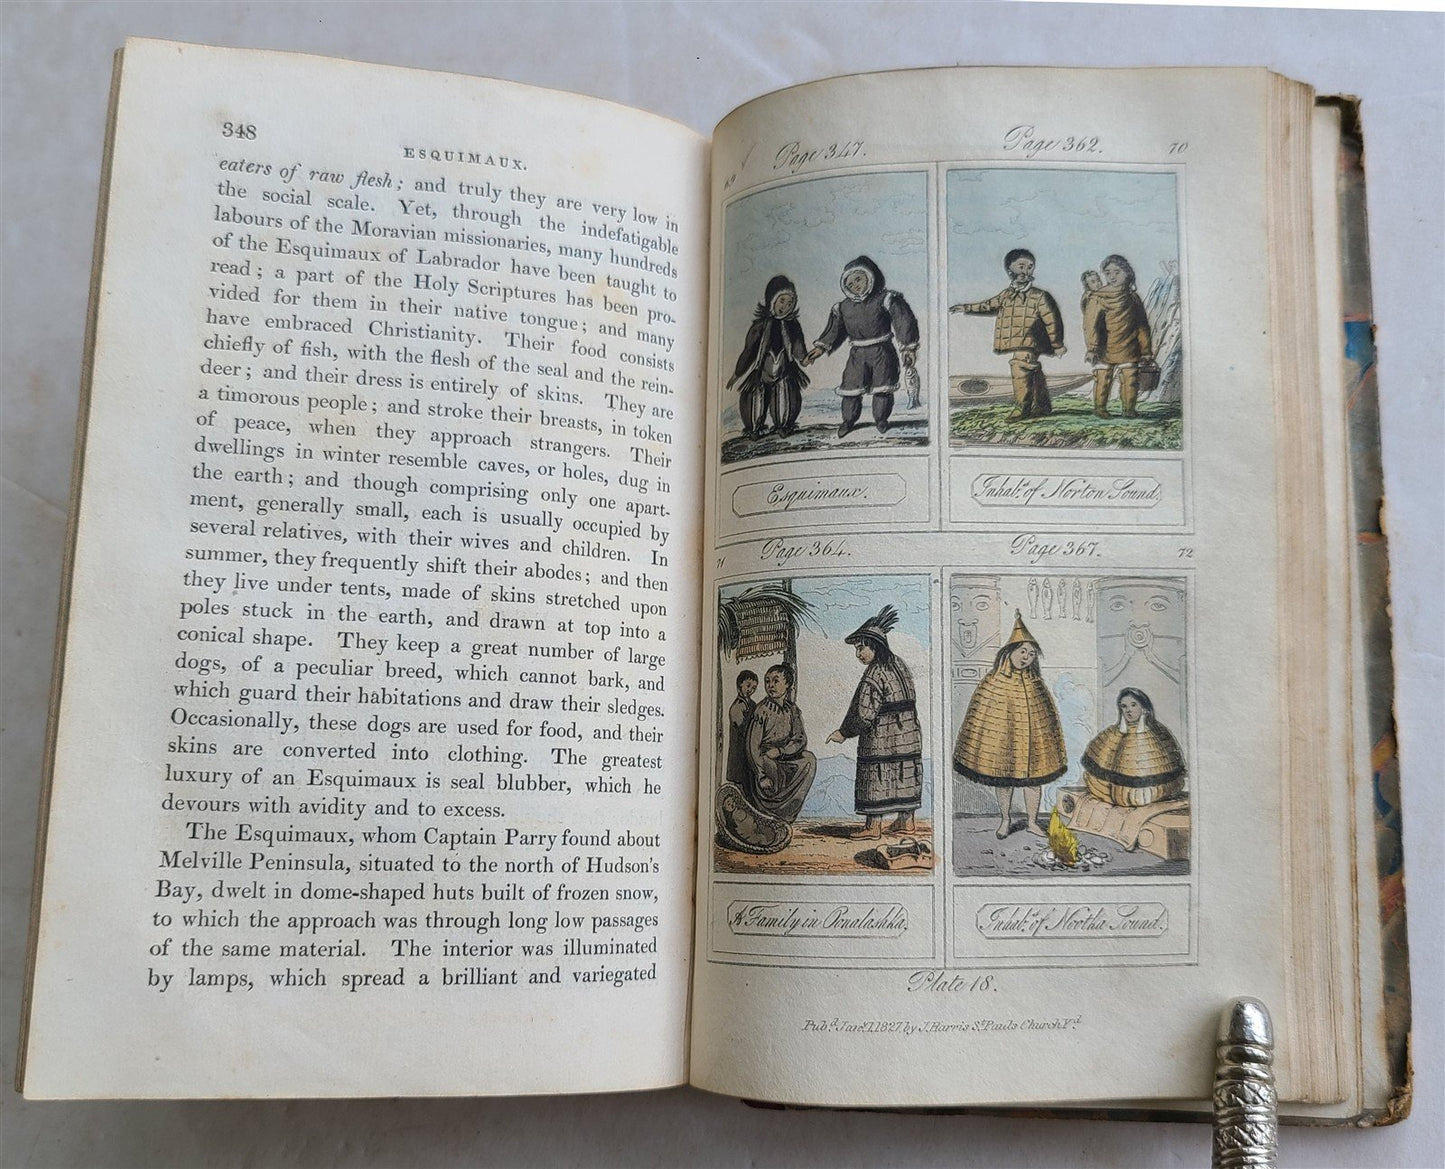 348
ESQUIMAUX.
eaters of raw flesh; and truly they are very low in
the social scale. Yet, through the indefatigable
labours of the Moravian missionaries, many hundreds
of the Esquimaux of Labrador have been taught to
read; a part of the Holy Scriptures has been pro-
vided for them in their native tongue; and many
have embraced Christianity. Their food consists
chiefly of fish, with the flesh of the seal and the rein-
deer; and their dress is entirely of skins. They are
a timorous people; and stroke their breasts, in token
of peace, when they approach strangers. Their
dwellings in winter resemble caves, or holes, dug in
the earth; and though comprising only one apart-
ment, generally small, each is usually occupied by
several relatives, with their wives and children. In
summer, they frequently shift their abodes; and then
they live under tents, made of skins stretched upon
poles stuck in the earth, and drawn at top into a
conical shape. They keep a great number of large
dogs, of a peculiar breed, which cannot bark, and
which guard their habitations and draw their sledges.
Occasionally, these dogs are used for food, and their
skins are converted into clothing. The greatest
luxury of an Esquimaux is seal blubber, which he
devours with avidity and to excess.
The Esquimaux, whom Captain Parry found about
Melville Peninsula, situated to the north of Hudson's
Bay, dwelt in dome-shaped huts built of frozen snow,
to which the approach was through long low passages
of the same material. The interior was illuminated
by lamps, which spread a brilliant and variegated
69 Page 347. Page 362. 70
Esquimaux. Inhabts. of Norton Sound.
71 Page 364. Page 367. 72
A Family in Oonalashka. Inhabts. of Nootka Sound.
Plate 18.
Pubd. Jany. 1, 1827, by J. Harris St. Pauls Church Yd.